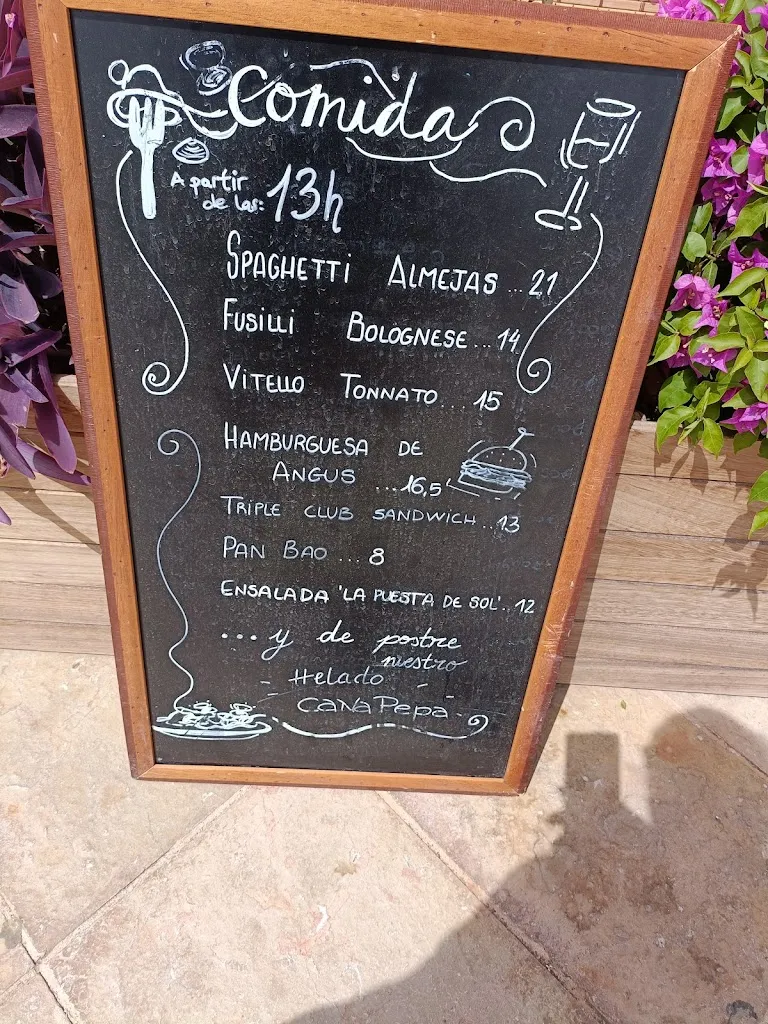 Comida
A partir
de las: 13h
SPAGHETTI ALMEJAS ... 21
FUSILLI BOLOGNESE ... 14
VITELLO TONNATO ... 15
HAMBURGUESA DE
ANGUS ... 16,5
TRIPLE CLUB SANDWICH .. 13
PAN BAO ... 8
ENSALADA 'LA PUESTA DE SOL' .. 12
... y de postre
nuestro
- Helado -
CANA PEPA -